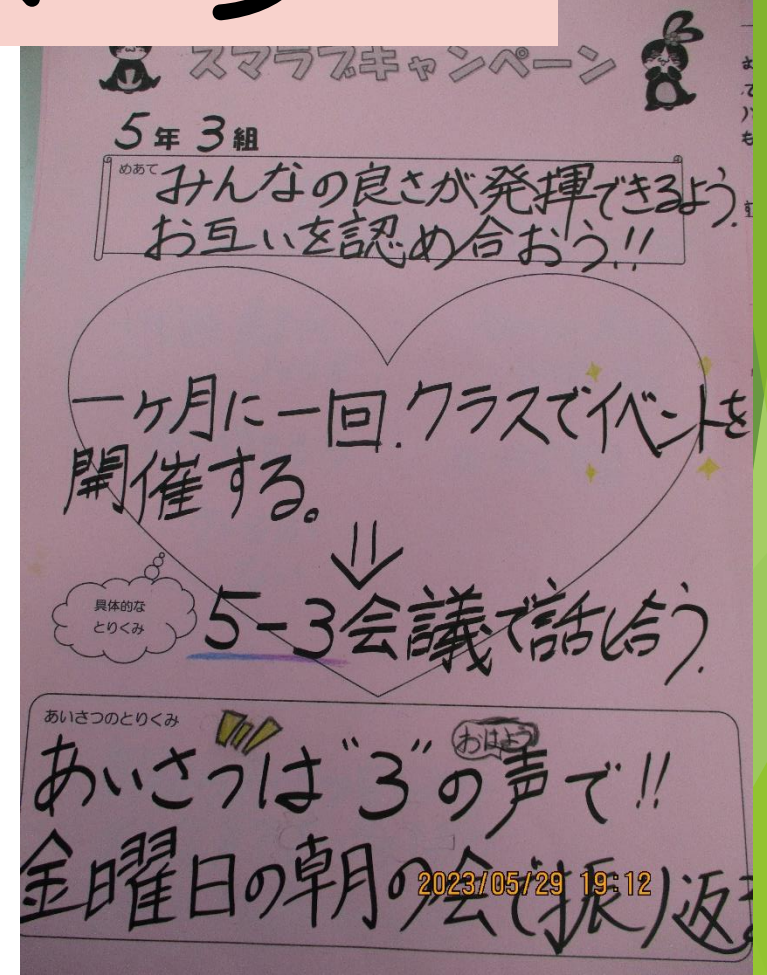 スマラブキャンペーン
5年3組
めあて
みんなの良さが発揮できるよう、
お互いを認め合おう!!
一ヶ月に一回、クラスでイベントを
開催する。
具体的な
とりくみ
5-3会議で話し合う、
あいさつのとりくみ
おはよう
あいさつは"3"の声で!!
金曜日の朝の会で振り返る
2023/05/29 19:12